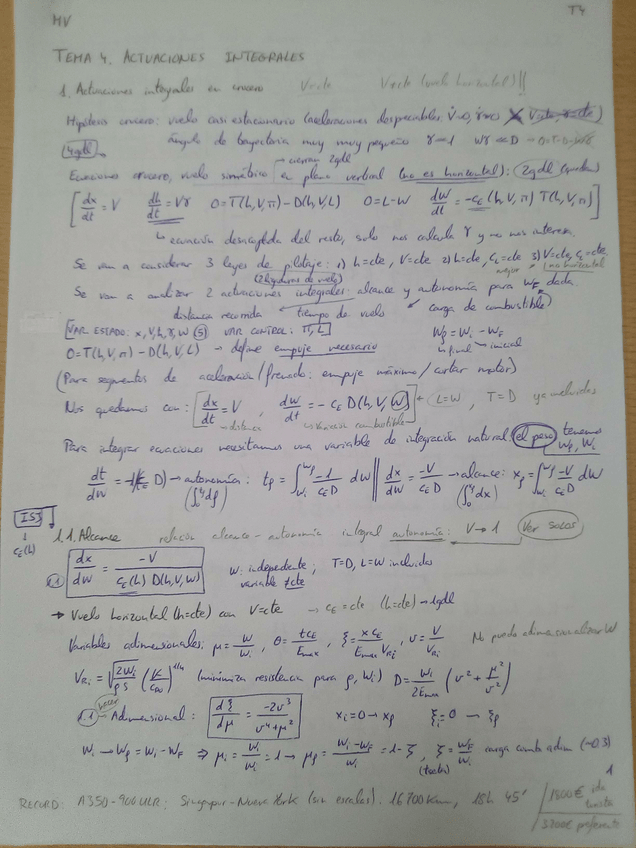 MV
T4
TEMA 4. ACTUACIONES INTEGRALES
1. Actuaciones integrales en crucero V=cte V≠cte (vuelo horizontal)!!
Hipótesis crucero: vuelo casi estacionario (aceleraciones despreciables V̇=0, γ̇=0)
4gdl ángulo de trayectoria muy muy pequeño γ≪1 Wγ≪D
→ cierran 2gdl
Ecuaciones crucero, vuelo simétrico en plano vertical (no es horizontal): 2gdl (quedan)
[dx/dt = V dh/dt = Vγ 0=T(h,V,π)-D(h,V,L) 0=L-W dW/dt = -cE(h,V,π) T(h,V,π)]
↳ ecuación desacoplada del resto, solo nos calcula γ y no nos interesa.
Se van a considerar 3 leyes de pilotaje: 1) h=cte, V=cte 2) h=cte, CL=cte 3) V=cte, CL=cte
(2 ligaduras de vuelo) mejor no horizontal
Se van a analizar 2 actuaciones integrales: alcance y autonomía para WF dada.
distancia recorrida tiempo de vuelo carga de combustible
[VAR ESTADO: x, V, h, γ, W (5) VAR CONTROL: π, L] WF = Wi - Wf
0=T(h,V,π) - D(h,V,L) → define empuje necesario final inicial
(Para segmentos de aceleración/frenado: empuje máximo/cortar motor)
Nos quedamos con: [dx/dt = V, dW/dt = -cE D(h,V,W)] + L=W, T=D ya incluidos
→ distancia
Para integrar ecuaciones necesitamos una variable de integración natural: el peso tenemos Wf, Wi
dt/dW = -1/(cE D) → autonomía: tf = ∫Wi^Wf -1/(cE D) dW ‖ dx/dW = -V/(cE D) → alcance: xf = ∫Wi^Wf -V/(cE D) dW
ISA
↓
cE(h)
1.1. Alcance relación alcance - autonomía integral autonomía: V→1 Ver
1.1 dx/dW = -V/(cE(h) D(h,V,W)) W: indepediente; T=D, L=W incluidos
variable ≠cte
→ Vuelo horizontal (h=cte) con V=cte → cE=cte (h=cte) → 1gdl
Variables adimensionales: μ = W/Wi, θ = t cE/Emax, ξ = x cE/(Emax VRi), v = V/VRi No puedo adimensionalizar W
VRi = √(2Wi/ρS) (K/CD0)^1/4 (minimiza resistencia para ρ, Wi) D = Wi/2Emax (v² + μ²/v²)
1.1 - Adimensional: dξ/dμ = -2v³/(v⁴+μ²) xi=0 → xf ξi=0 → ξf
Wi → Wf = Wi - WF ⇒ μi = Wi/Wi = 1 → μf = (Wi-WF)/Wi = 1-ζ, ζ = WF/Wi carga comb adim (~0.3)
1
RECORD: A350-900ULR: Singapur-Nueva York (sin escalas). 16700Km, 18h 45' 1800€ ida
turista
3200€ preferente